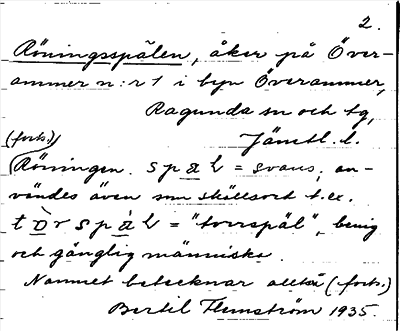 2.
Röningsspälen, åker på Över-
ammer n:r 1 i byn Överammer,
Ragunda sn och tg,
(forts.) Jämtl. l.
(Röningen. spal = svans, an-
vändes även som skällsord t.ex.
tòr spál = "torrspäl", benig
och gänglig människa.
Namnet betecknar alltså (forts.)
Bertil Flemström 1935.